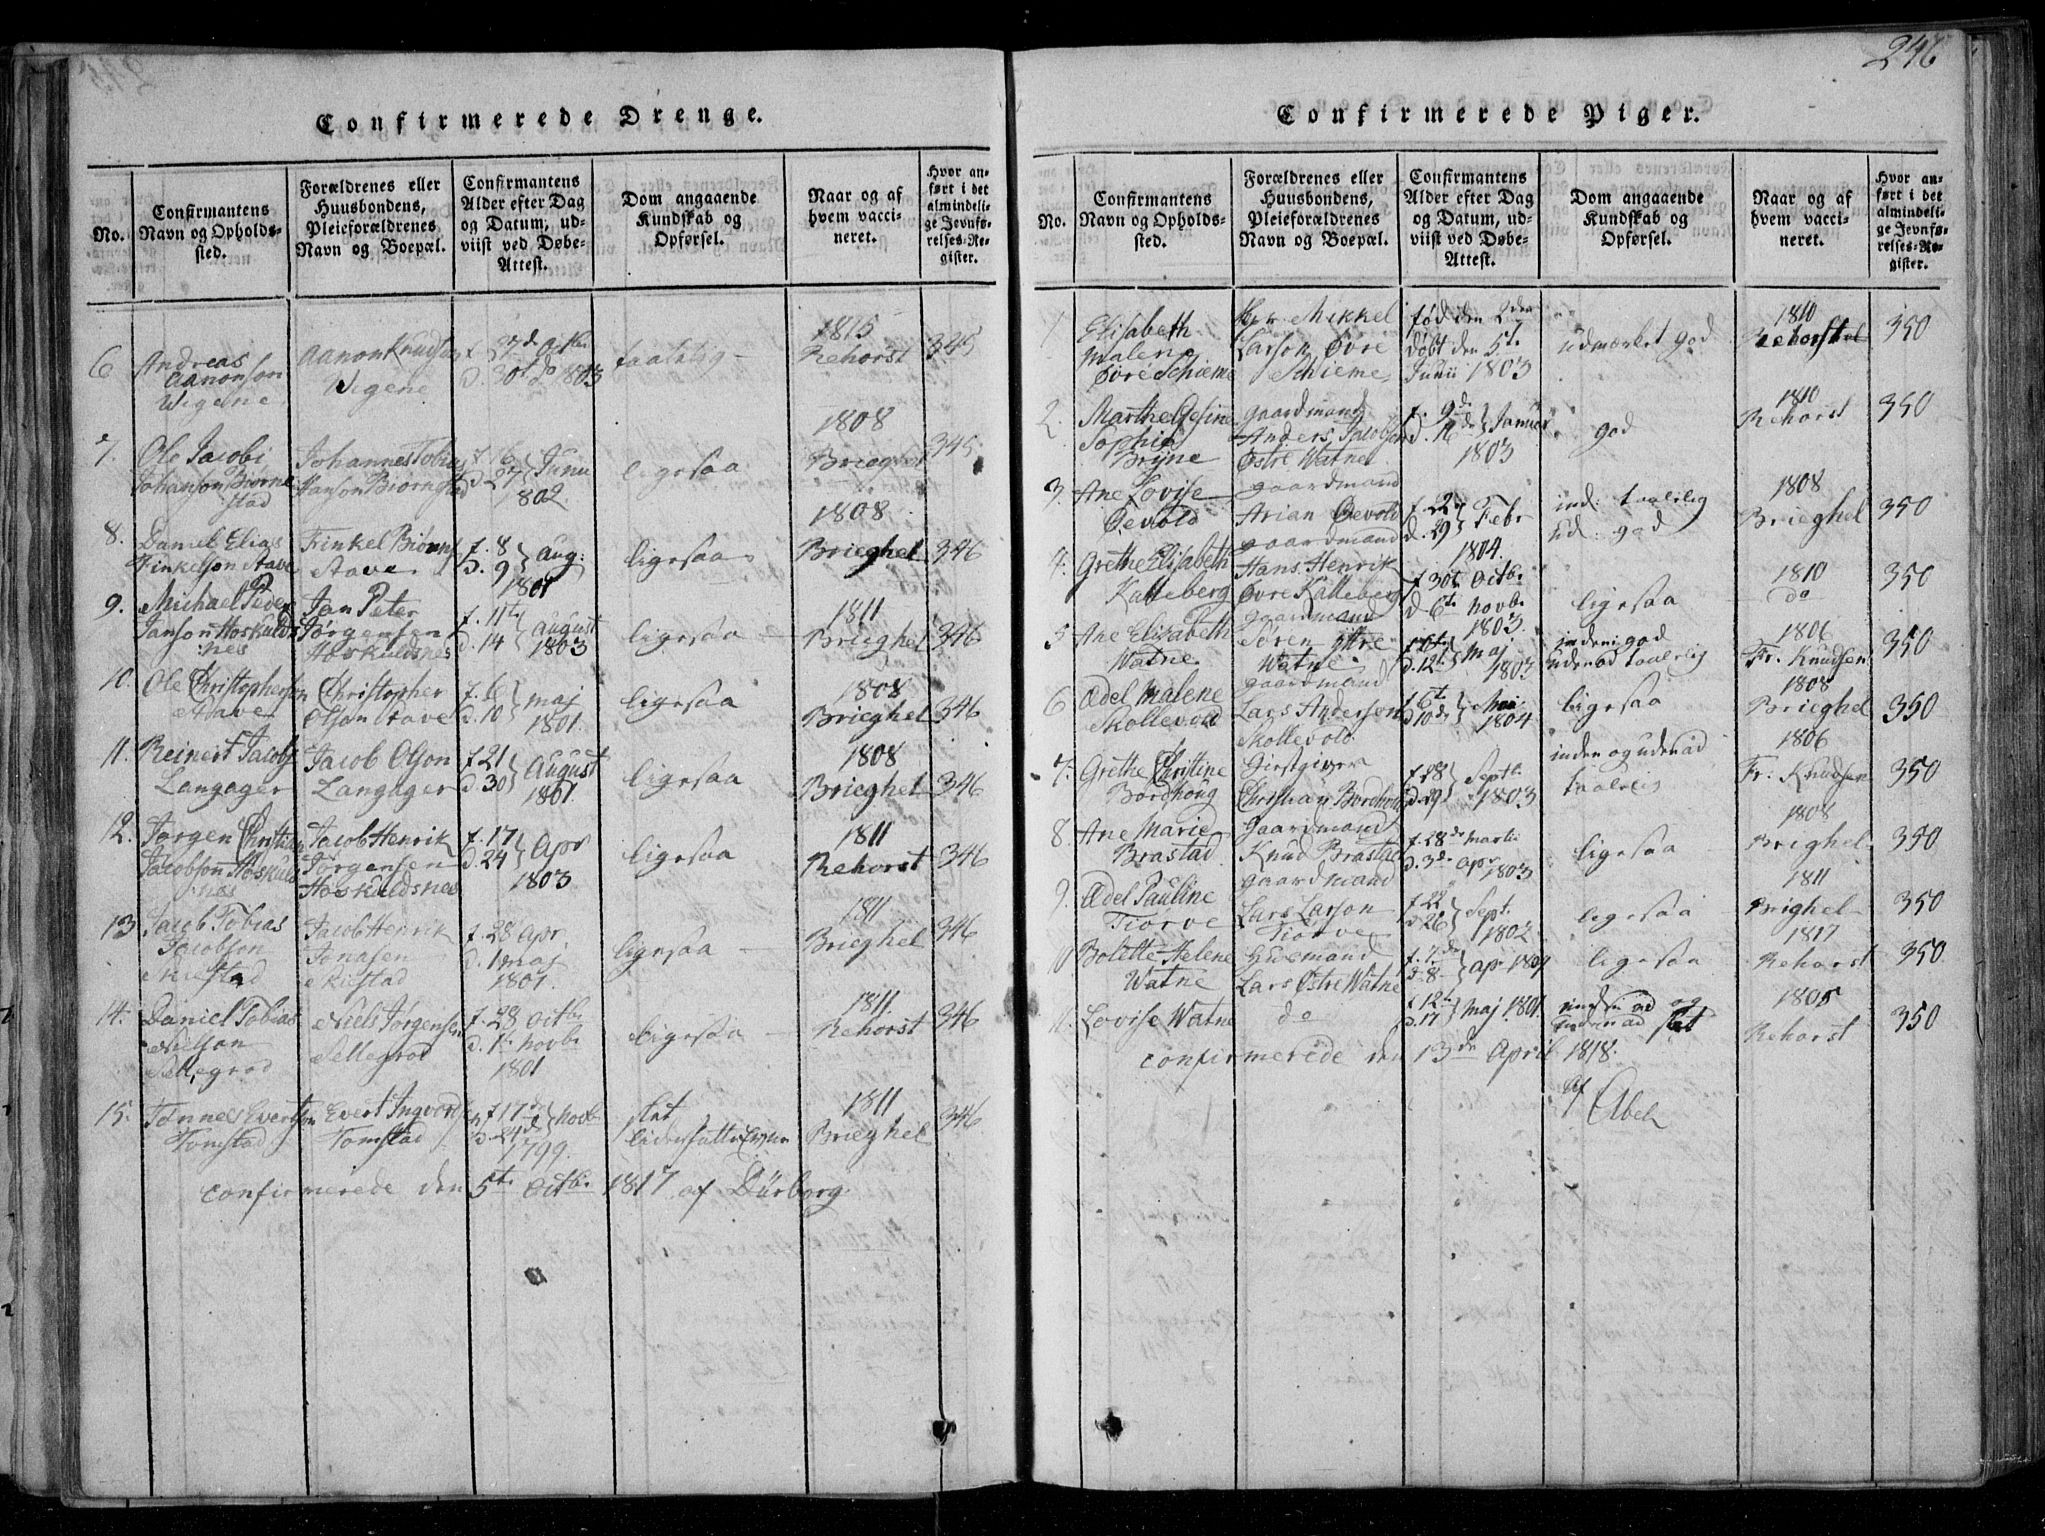 Confirmerede Drenge.
No.
Confirmantens
Navn og Opholds-
sted.
Forældrenes eller
Huusbondens,
Pleieforældrenes
Navn og Boepæl.
Confirmantens
Alder efter Dag
og Datum, ud-
viist ved Døbe-
Attest.
Dom angaaende
Kundskab og
Opførsel.
Naar og af
hvem vacci-
neret.
Hvor an-
ført i det
almindeli-
ge Jevnfø-
relses-Re-
gister.
6
Andreas
Aanonson
Wigene
Aanon Knudson
Wigene
f. 27d Octbr
d. 30t do 1803
taalelig
1815
Rehorst
345
7.
Ole Jacobi
Johanson Biørne
stad
Johannes Tobias
Hanson Biørnstad
f. 16
d. 27 Junii
1802.
ligesaa
1808
Brieghel
345
8.
Daniel Elias
Finkelson Stave
Finkel Biørns
Stave
f. 8
d. 9 Aug:
1801
ligesaa
1808.
Brieghel
346
9.
Michael Peder
Janson Hoskulds
nes
Jan Peter
Jørgensen
Hoskuldsnes
f. 11te
d. 14 August
1803
ligesaa
1811
Brieghel
346
10.
Ole Christophersen
Stave
Christopher
Olson Stave
f. 6
d. 10 maj
1801.
ligesaa
1808
Brieghel
346
11.
Reinert Jacobs
Langager
Jacob Olson
Langager
f. 21
d. 30 August
1801.
ligesaa
1808
Brieghel
346
12.
Jørgen Christian
Jacobson Hoskulds
nes
Jacob Henrik
Jørgensen
Hoskuldsnes
f. 17
d. 24 Apr
1803
ligesaa
1811
Rehorst
346
13
Jacob Tobias
Jacobson
Skiestad
Jacob Henrik
Jonasen
Skiestad
f. 28 Apr.
d. 1 maj
1801.
ligesaa
1811
Brieghel
346
14.
Daniel Tobias
Nielson
Sellegrod
Niels Jørgensen
Sellegrod
f. 28 Octbr
d. 1te Novbr
1801
ligesaa
1811.
Rehorst
346
15.
Tønnes Evertson
Tomstad
Evert Ingvord
Tomstad
f. 17de
d. 24d Novbr
1799.
slet
1811
Brieghel
346
confirmerede den 5te Octbr 1817 af Dürborg.
246
Confirmerede Piger.
No.
Confirmantens
Navn og Opholds-
sted.
Forældrenes eller
Huusbondens,
Pleieforældrenes
Navn og Boepæl.
Confirmantens
Alder efter Dag
og Datum, ud-
viist ved Døbe-
Attest.
Dom angaaende
Kundskab og
Opførsel.
Naar og af
hvem vacci-
neret.
Hvor an-
ført i det
almindeli-
ge Jevnfø-
relses-Re-
gister.
1
Elisabeth
Malene
Øvre Schieme
Hr. Mikkel
Larson Øvre
Schieme
fød den 2den
døbt den 5te
Junii 1803
udmærket god
1810
Rehorst
350
2.
Marthe Gesine
Sophie
Bryne
gaardmand
Anders Jacobson
Østre Watne
f. 9de
d. 16de Januar
1803
god
1810
Rehorst
350
3.
Ane Lovise
Øevold
gaardmand
Arian Øevold
f. 22
d. 29 Febr
1804.
ind: taalelig
Ud. god
1808
Brieghel
350
4.
Grethe Elisabeth
Kalleberg
gaardmand
Hans Henrik
Øvre Kalleberg
f. 30te Octbr
d. 6te Novbr
1803.
ligesaa
1810
do
350
5
Ane Elisabeth
Watne
gaardmand
Søren Ytre
Watne
d. 12te maj
1803
indeni god
udenad taalelig
1806
Fr. Knudsen
350
6
Ædel Malene
Skollevold
gaardmand
Lars Anderson
Skollevold
f. 6te
d 10de Mai
1804
ligesaa
1808
Brieghel
350
7.
Grethe Christine
Bordhoug
Giestgiver
Christian Bordhoug
f. 18
d. 29 Septbr
1803
inden og udenad
taalelig
1806
Fr. Knudsen
350
8.
Ane Marie
Brastad
gaardmand
Knud Brastad
f. 28de Martii
d. 3de Apr
1803
ligesaa
1808
Brighel
350
9.
Ædel Pauline
Tiorve
gaardmand
Lars Larson
Tiorve
f. 22
d 26 Sept.
1802
ligesaa
1811
Brighel
350
10
Bolette Helene
Watne
Husmand
Lars Østre Watne
f. 7de
d 8 Apr 1804
ligesaa
1817
Rehorst
350
11.
Lovise Watne
do
f 12te
d. 17 maj 1801.
inden ad og
udenad slet
1805
Rehorst
350
confirmerede den 13de April 1818.
af
Abel